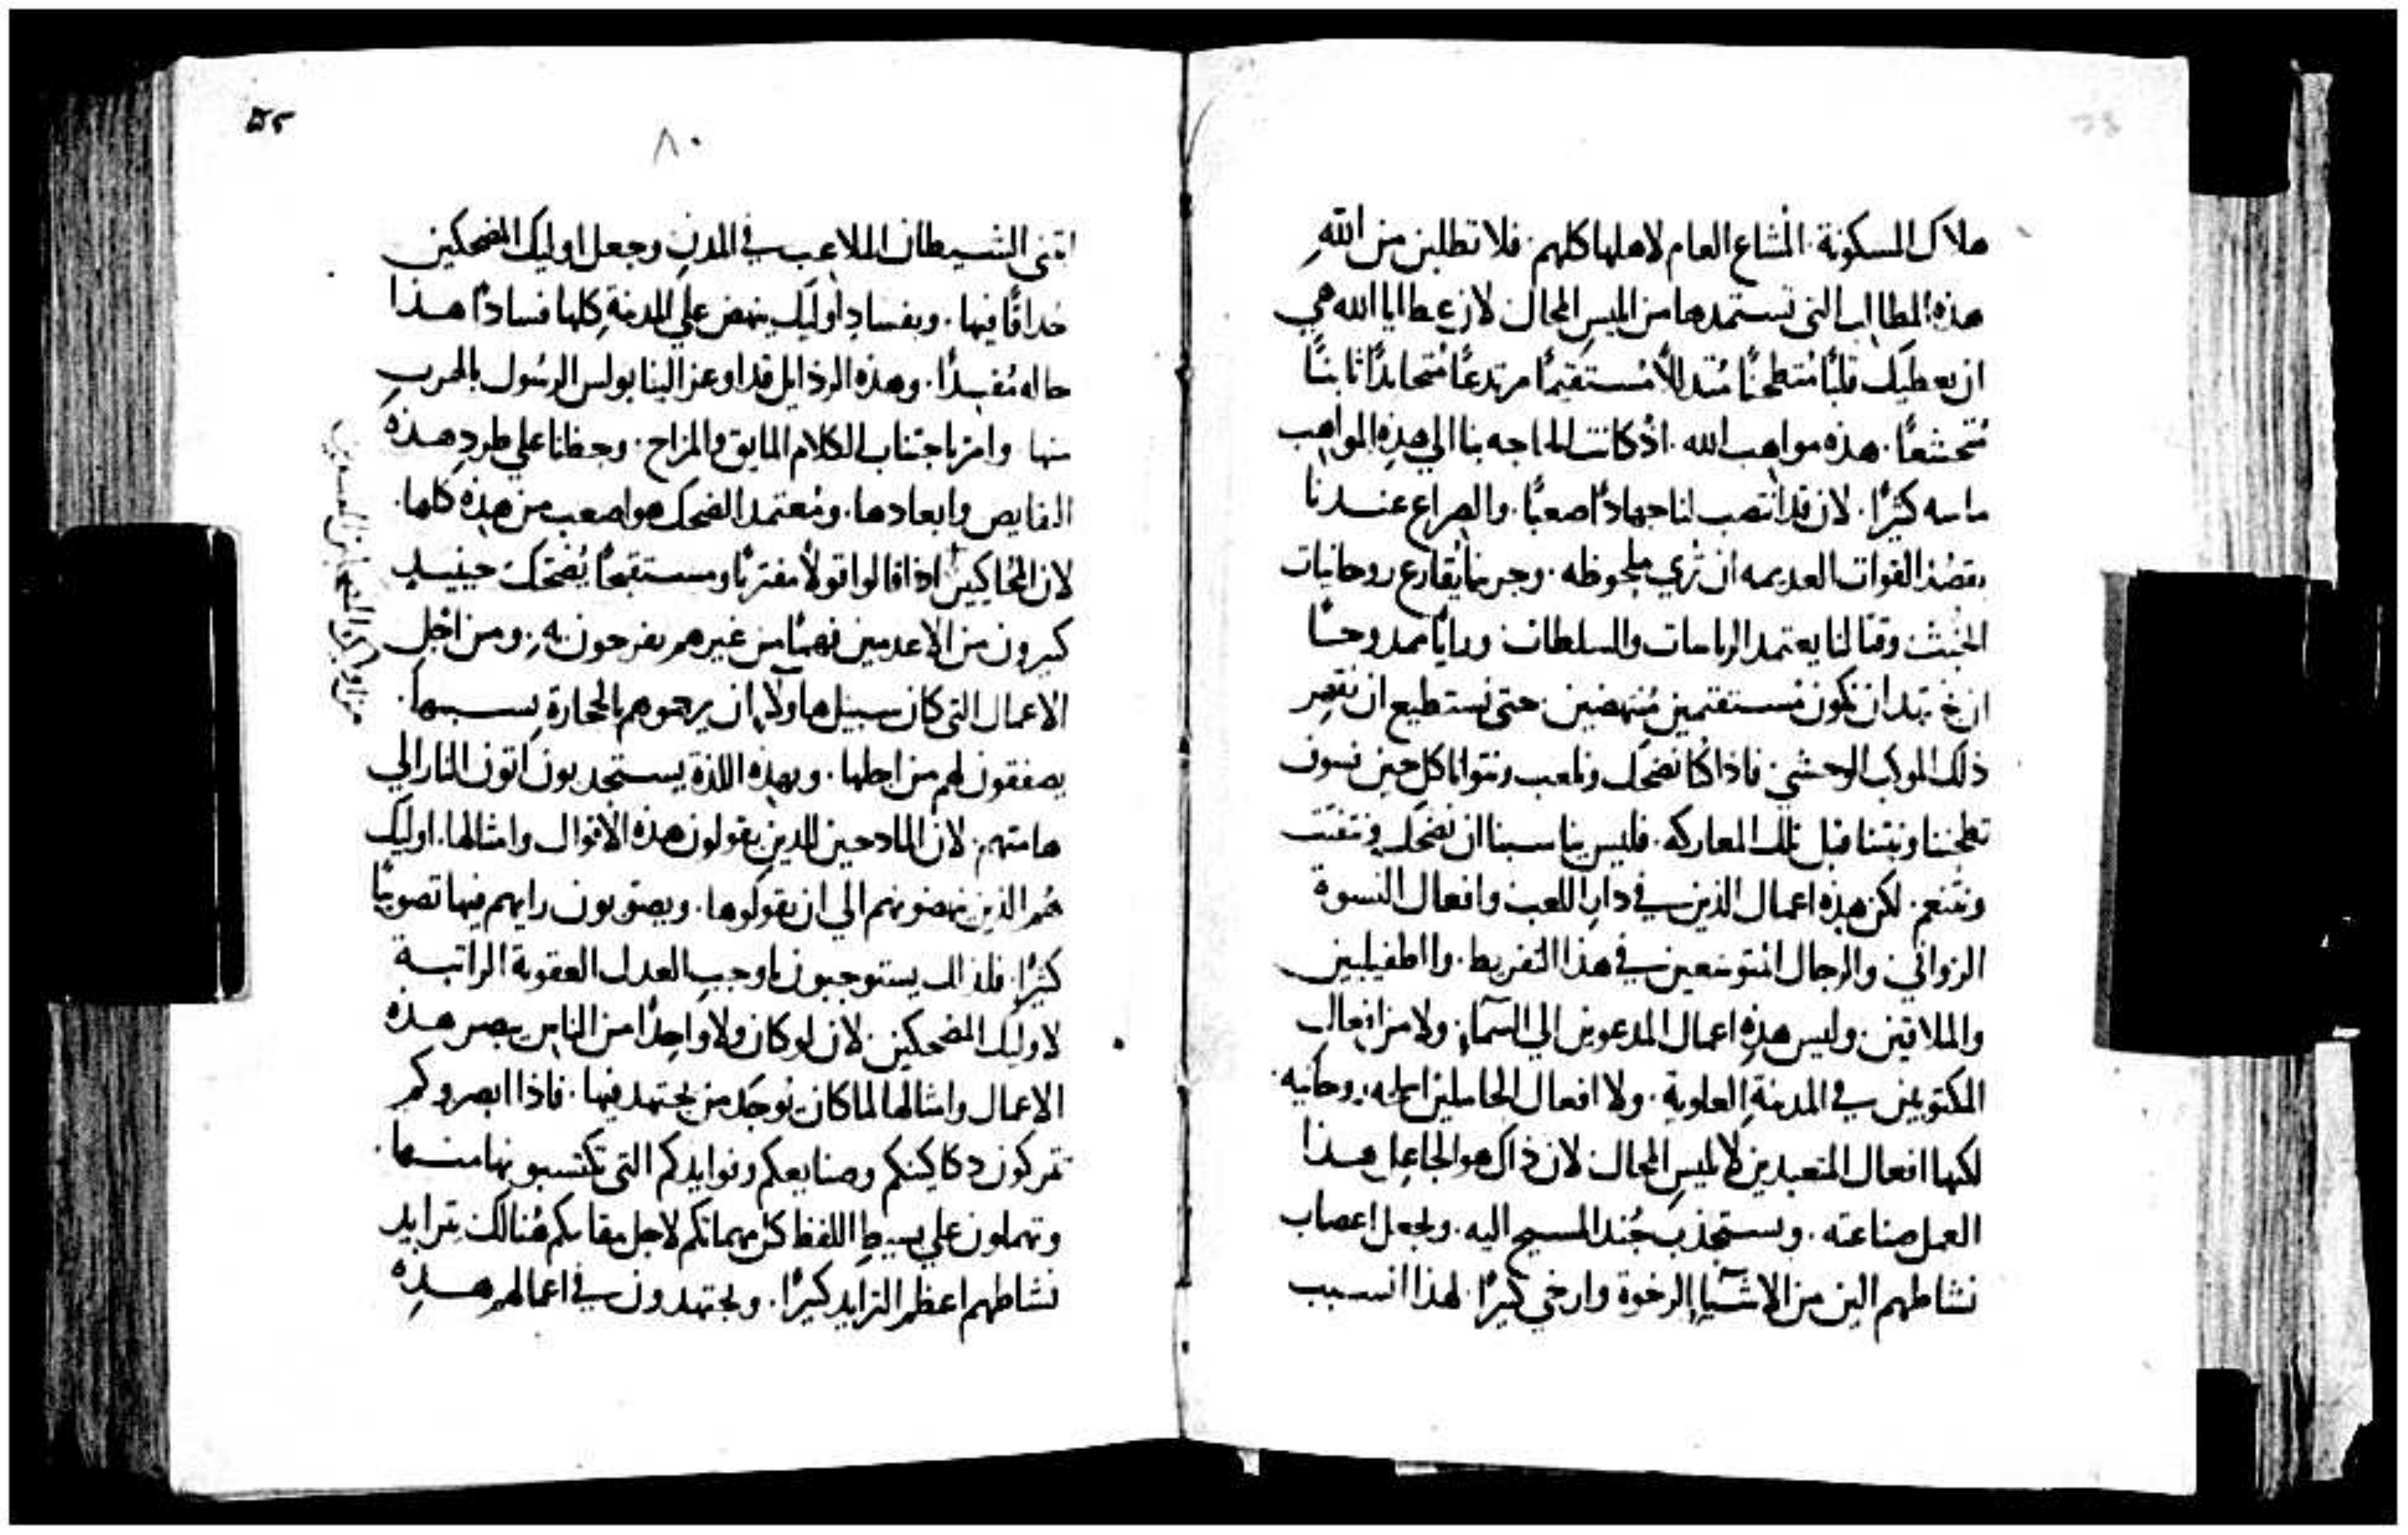 هلاك المسكونة. المشاع العام لاهلها كلهم. فلا تطلبن من الله
هذه المطالب التي تستمدها من ابليس المحال لان عطايا الله هي
ان يعطيك قلبًا متطحنًا متدللًا مستقيمًا مرتدعًا ثابتًا
متخشعًا. هذه مواهب الله. اذ كانت الحاجه بنا الي هذه المواهب
ماسه كثيرًا. لان قد انتصب لنا جهادًا صعبًا. والصراع عندنا
يقصد القوات العديمه ان تري ملحوظه. وحربنا يقارع روحانيات
الخبث وقتالنا يعتمد الرياسات والسلطات
ان نجتهد ان نكون مستقيمين منتهضين. حتى نستطيع ان
ذلك الموكب الوحشي. فاذا كنا نضحك ونلعب ونتوانا كل حين فسوف
قبل تلك المعاركه. فليس يناسبنا ان نضحك
ونتنعم. لكن هذه اعمال الذين في دار اللعب وافعال النسوة
الزواني. والرجال المتوسعين في هذا التفريط. والطفيليين
والملاقين. وليس هذه اعمال المدعوين الي السماء. ولا من افعال
المكتوبين في المدينة العلوية. ولا افعال الحاملين اسلحه روحانيه.
لكنها افعال المتعبدين لابليس المحال. لان ذاك هو الجاعل هذا
العمل صناعته. ويستجذب جند المسيح اليه. ويجعل اعصاب
نشاطهم الين من الاشياء الرخوة وارخي كثيرًا. لهذا السبب
٨٠
ابتنى الشيطان الملاعب في المدن وجعل اوليك المضحكين
حداقًا فيها. وبفساد اوليك ينهض علي المدينة كلها فسادًا هذا
حاله مفسدًا. وهذه الرذايل قد اوعز الينا بولس الرسول بالهرب
منها وامر باجتناب الكلام المايق والمزاح. وحظنا علي طرد هذه
النقايص وابعادها. ومعتمد الضحك هو اصعب من هذه كلها.
لان المحاكيين اذا قالوا قولًا مفتريًا ومستقبحًا يضحك حينيد
كثيرون من الاعدمين فهمًا من غيرهم يفرحون به. ومن اجل
الاعمال التي كان سبيلها اولًا ان يرجموهم بالحجارة بسببها.
يصفقون لهم من اجلها. وبهذه اللذة يستجدبون اتون النار الي
هامتهم. لان المادحين للدين يقولون هذه الاقوال وامثالها. اوليك
هم الذين ينهضونهم الي ان يقولوها. ويصوبون رايهم فيها تصويبًا
كثيرًا. فلذلك يستوجبون باوجب العدل العقوبة الراتبة
لاوليك المضحكين. لان لو كان ولا واحدًا من الناس يبصر هذه
الاعمال وامثالها لما كان يوجد من يجتهد فيها. فاذا ابصروكم
تتركون دكاكينكم وصنايعكم وفوايدكم التي تكتسبونها منها.
وتهملون علي بسيط اللفظ كل مهماتكم لاجل مقامكم هنالك يتزايد
نشاطهم اعظم التزايد كثيرًا. ويجتهدون في اعمالهم هذه